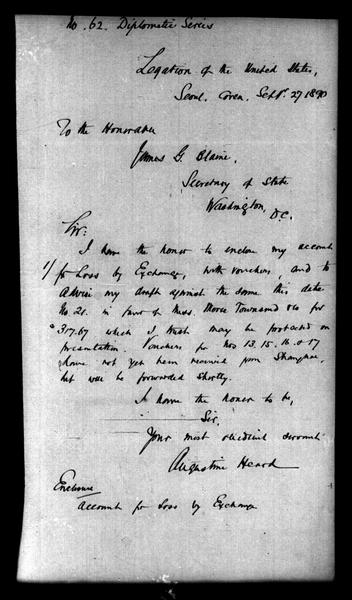 No. 62. Diplomatic Series
Legation of the United States,
Seoul, Corea, Sept. 27 1890
To the Honorable
James G. Blaine,
Secretary of State
Washington,
D.C.
Sir:
I have the honor to enclose my account
1/ for Loss by Exchange, with vouchers, and to
advise my draft against the same this date
No 20. in favor of Messrs. Morse Townsend & Co for
$ 317.67 which I trust may be protected on
presentation. Vouchers for Nos 13. 15. 16. & 17
have not yet been received from Shanghai,
but will be forwarded shortly.
I have the honor to be,
Sir,
Your most obedient servant
Augustine Heard
Enclosure
Account for Loss by Exchange